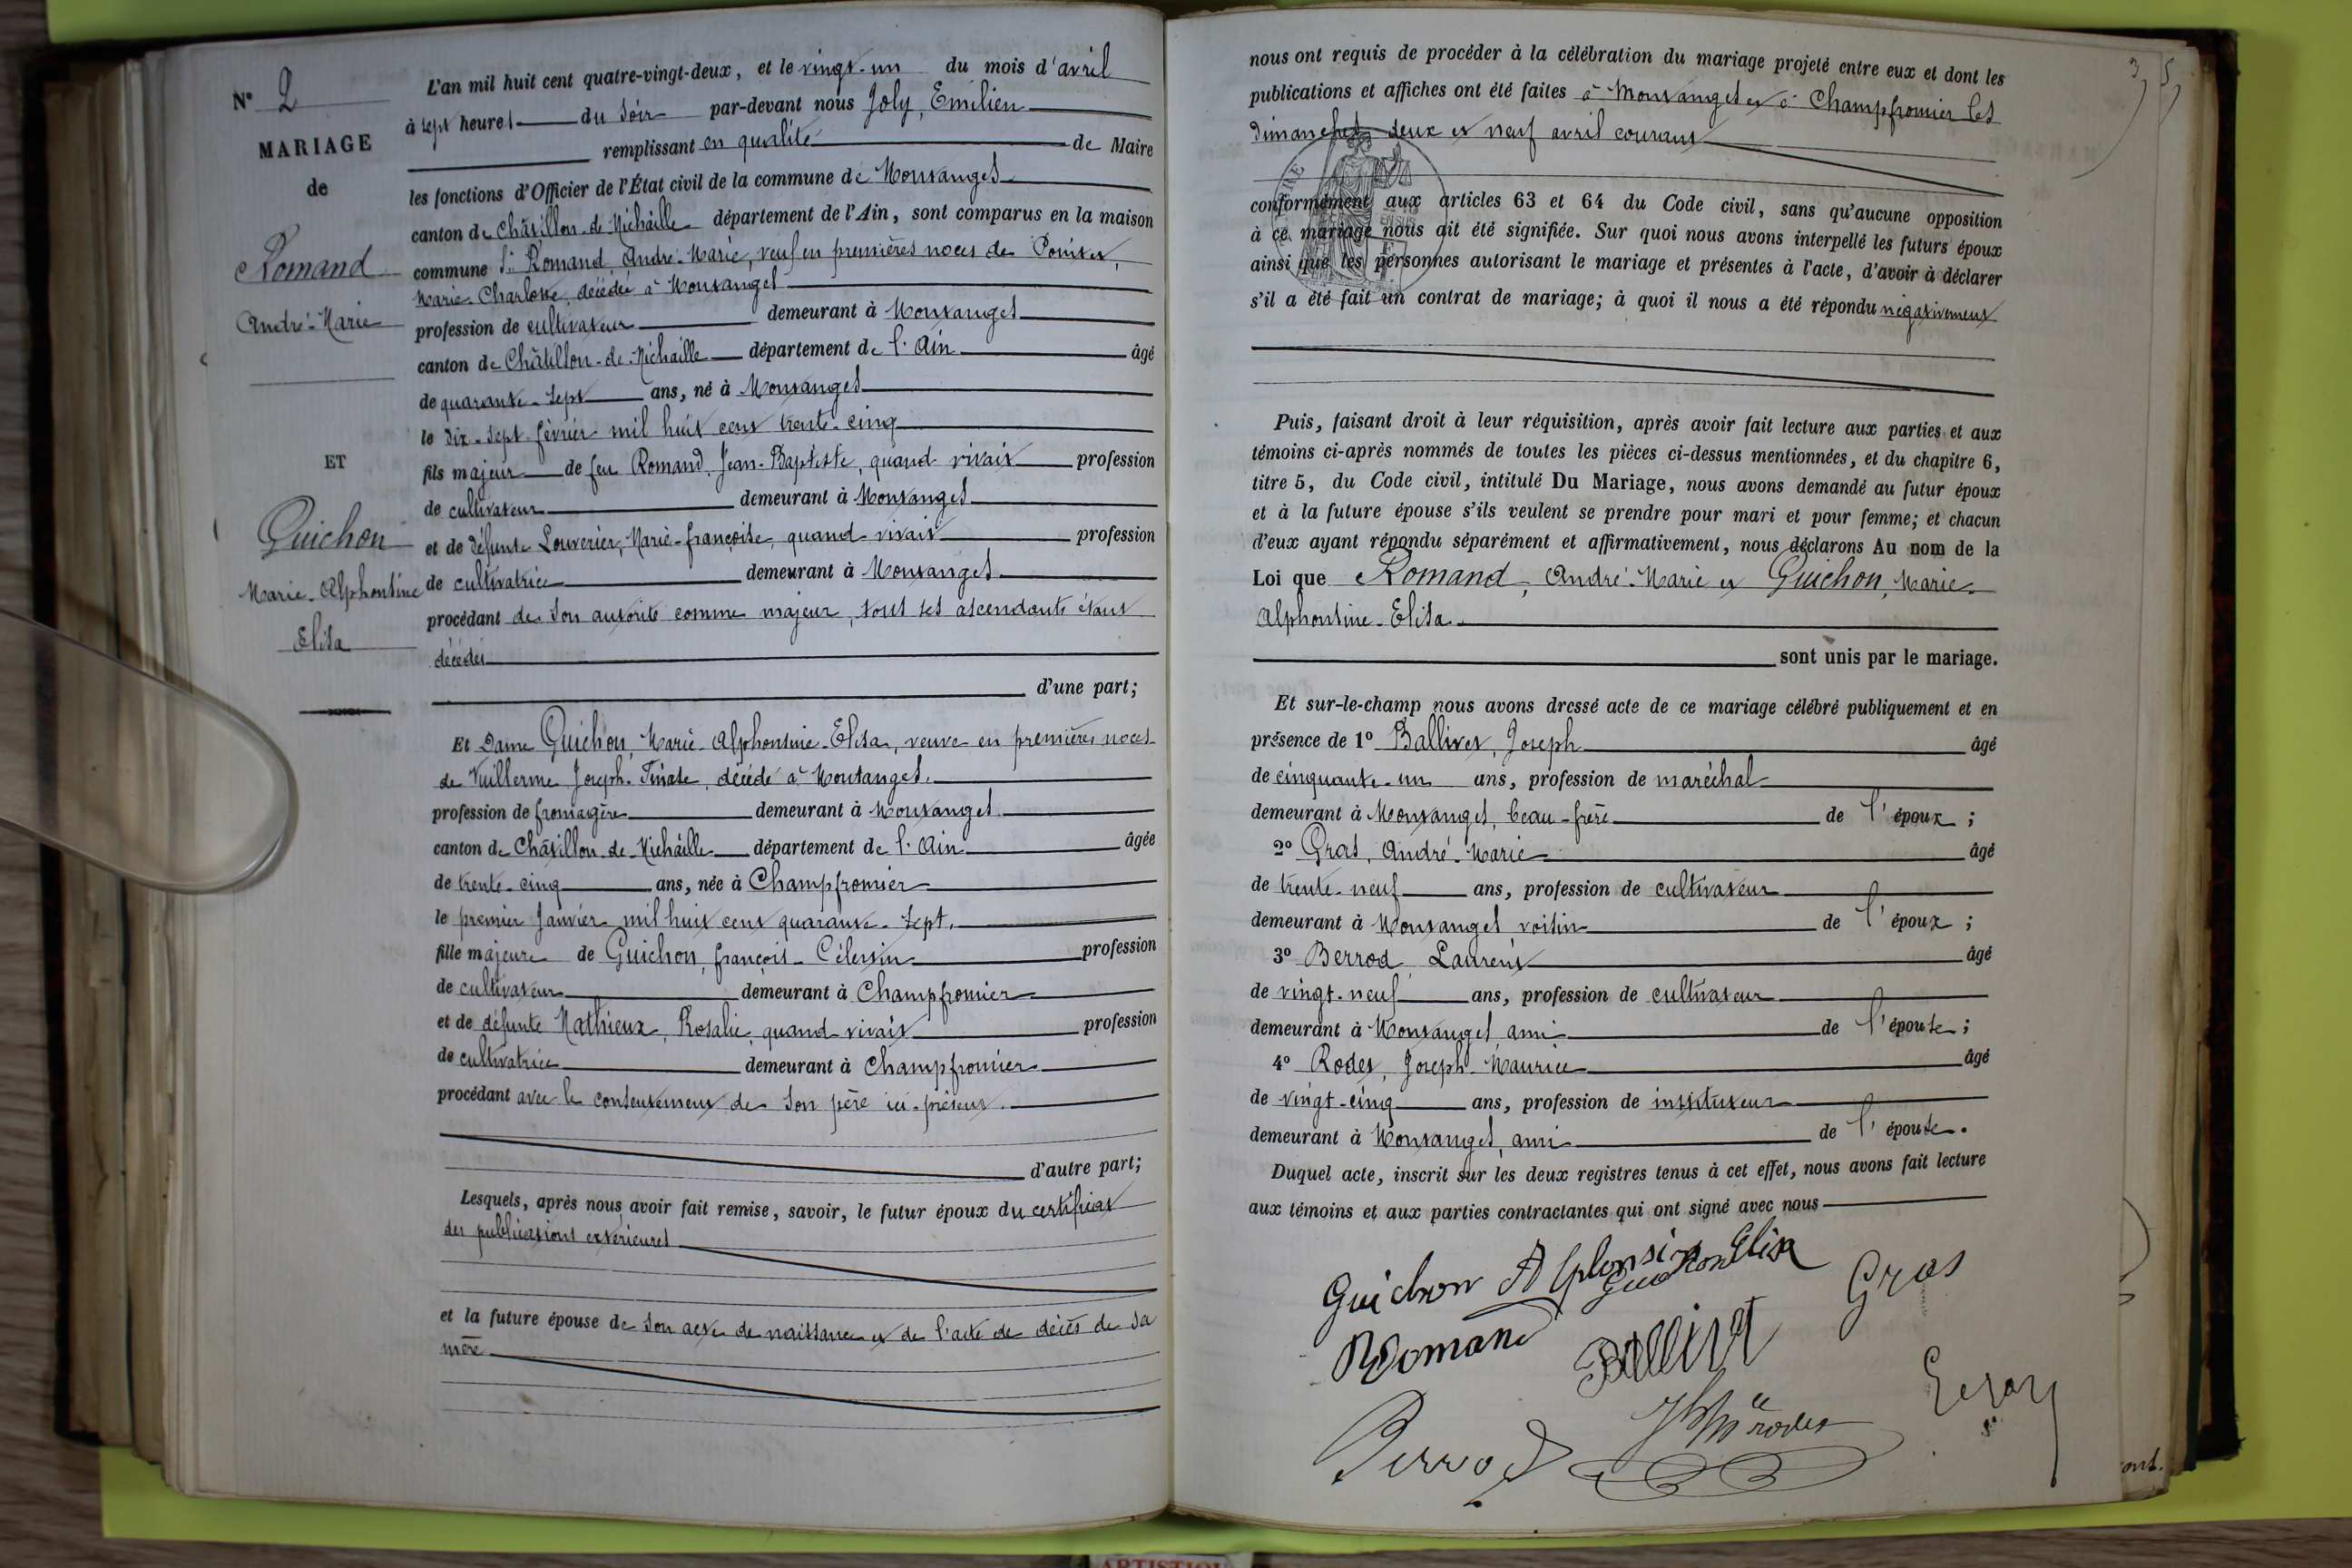 N° 2
MARIAGE
de
Romand
André-Marie
ET
Guichon
Marie-Alphonsine
Elisa
L'an mil huit cent quatre-vingt-deux, et le vingt-un du mois d'avril
à sept heures du soir par-devant nous Joly, Emilien
remplissant en qualité de Maire
les fonctions d'Officier de l'État civil de la commune de Montanges
canton de Châtillon-de-Michaille département de l'Ain, sont comparus en la maison
commune Sr Romand, André-Marie, veuf en premières noces de
Marie-Charlotte, décédée à Montanges
profession de cultivateur demeurant à Montanges
canton de Châtillon-de-Michaille département de l'Ain âgé
de quarante-sept ans, né à Montanges
le dix-sept février mil huit cent trente-cinq
fils majeur de feu Romand, Jean-Baptiste, quand vivait profession
de cultivateur demeurant à Montanges
et de défunte Louverier, Marie-françoise, quand vivait profession
de cultivatrice demeurant à Montanges
procédant de son autorité comme majeur, tous ses ascendants étant
décédés
d'une part;
Et Dame Guichon, Marie-Alphonsine-Elisa, veuve en premières noces
de Vuillerme Joseph décédé à Montanges.
profession de fromagère demeurant à Montanges
canton de Châtillon-de-Michaille département de l'Ain âgée
de trente-cinq ans, née à Champfromier
le premier Janvier mil huit cent quarante-sept.
fille majeure de Guichon, françois-Célestin profession
de cultivateur demeurant à Champfromier
et de défunte Mathieux, Rosalie, quand vivait profession
de cultivatrice demeurant à Champfromier
procédant avec le consentement de son père ici-présent.
d'autre part;
Lesquels, après nous avoir fait remise, savoir, le futur époux du certificat
des publications extérieures
et la future épouse de son acte de naissance et de l'acte de décès de sa
mère
nous ont requis de procéder à la célébration du mariage projeté entre eux et dont les
publications et affiches ont été faites à Montanges et à Champfromier les
dimanches deux et neuf avril courant
conformément aux articles 63 et 64 du Code civil, sans qu'aucune opposition
à ce mariage nous ait été signifiée. Sur quoi nous avons interpellé les futurs époux
ainsi que les personnes autorisant le mariage et présentes à l'acte, d'avoir à déclarer
s'il a été fait un contrat de mariage; à quoi il nous a été répondu négativement
Puis, faisant droit à leur réquisition, après avoir fait lecture aux parties et aux
témoins ci-après nommés de toutes les pièces ci-dessus mentionnées, et du chapitre 6,
titre 5, du Code civil, intitulé Du Mariage, nous avons demandé au futur époux
et à la future épouse s'ils veulent se prendre pour mari et pour femme; et chacun
d'eux ayant répondu séparément et affirmativement, nous déclarons Au nom de la
Loi que Romand, André-Marie et Guichon, Marie-
Alphonsine-Elisa
sont unis par le mariage.
Et sur-le-champ nous avons dressé acte de ce mariage célébré publiquement et en
présence de 1° Ballivet, Joseph âgé
de cinquante-un ans, profession de maréchal
demeurant à Montanges, beau-frère de l'époux;
2° Gras, André-Marie âgé
de trente-neuf ans, profession de cultivateur
demeurant à Montanges voisin de l'époux;
3° Berrod Laurent âgé
de vingt-neuf ans, profession de cultivateur
demeurant à Montanges ami de l'épouse;
4° Rodet, Joseph-Maurice âgé
de vingt-cinq ans, profession de instituteur
demeurant à Montanges, ami de l'épouse.
Duquel acte, inscrit sur les deux registres tenus à cet effet, nous avons fait lecture
aux témoins et aux parties contractantes qui ont signé avec nous
Guichon Alphonsine Elisa
Guichon
Gras
Romand
Ballivet
Berrod
rodet